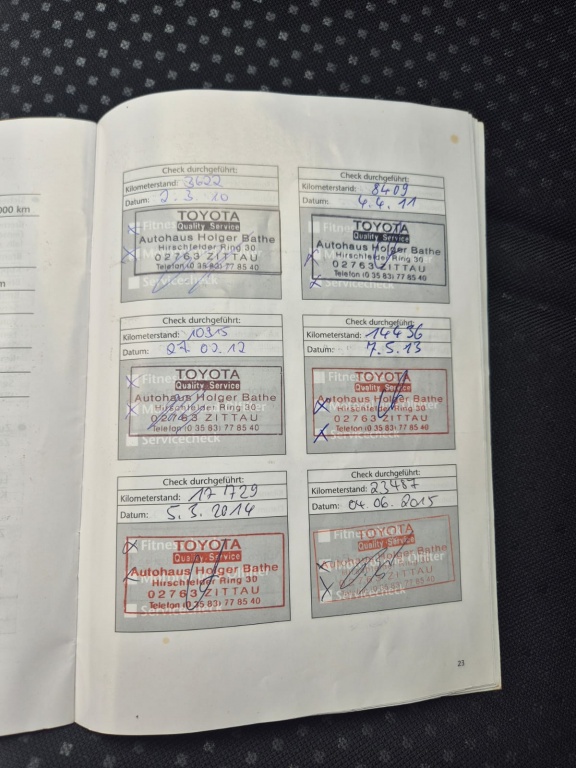 000 km
m
Check durchgeführt:
Kilometerstand: 3622
Datum: 2. 3. 10
Fitne
TOYOTA
Quality Service
Autohaus Holger Bathe
Hirschfelder Ring 30
02763 ZITTAU
Telefon (0 35 83) 77 85 40
Servicecheck
Check durchgeführt:
Kilometerstand: 8409
Datum: 4. 4. 11
Fitne
TOYOTA
Quality Service
Autohaus Holger Bathe
Hirschfelder Ring 30
02763 ZITTAU
Telefon (0 35 83) 77 85 40
Servicecheck
Check durchgeführt:
Kilometerstand: 10315
Datum: 27 02. 12
Fitne
TOYOTA
Quality Service
Autohaus Holger Bathe
Hirschfelder Ring 30
02763 ZITTAU
Telefon (0 35 83) 77 85 40
Servicecheck
Check durchgeführt:
Kilometerstand: 14436
Datum: 7. 5. 13
Fitne
TOYOTA
Quality Service
Autohaus Holger Bathe
Hirschfelder Ring 30
02763 ZITTAU
Telefon (0 35 83) 77 85 40
Servicecheck
Check durchgeführt:
Kilometerstand: 17 729
Datum: 5. 3. 2014
Fitne
TOYOTA
Quality Service
Autohaus Holger Bathe
Hirschfelder Ring 30
02763 ZITTAU
Telefon (0 35 83) 77 85 40
Servicecheck
Check durchgeführt:
Kilometerstand: 23487
Datum: 04. 06. 2015
Fitne
TOYOTA
Quality Service
Autohaus Holger Bathe
Hirschfelder Ring 30
02763 ZITTAU
Telefon (0 35 83) 77 85 40
Servicecheck
23